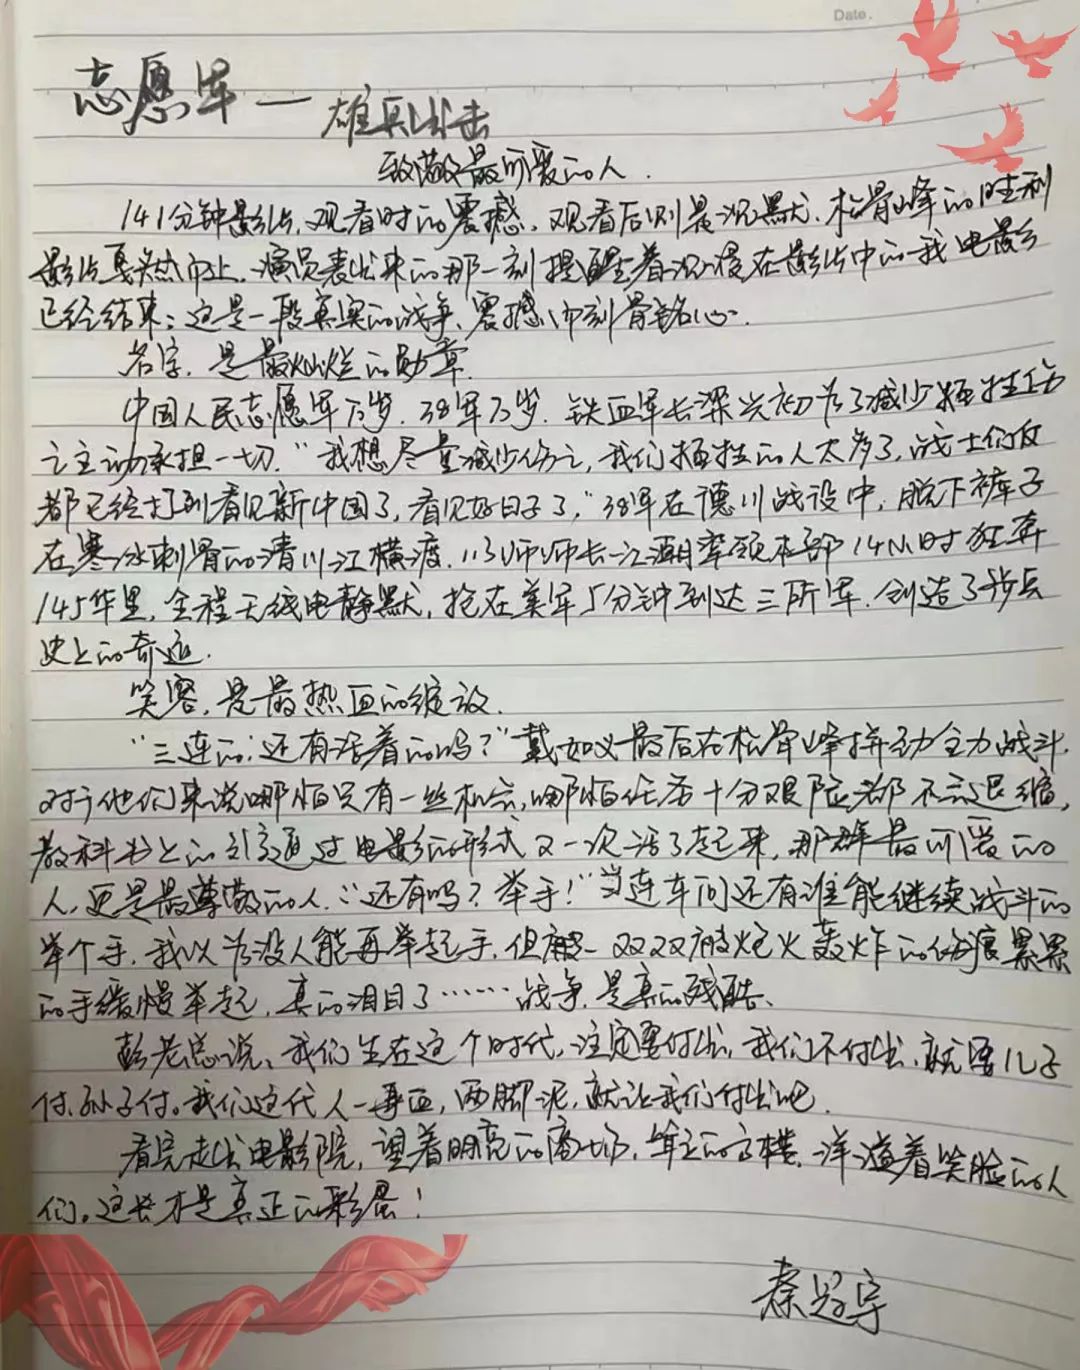 Date.
志愿军—雄兵出击
致敬最可爱的人.
141分钟影片,观看时的震撼,观看后则是沉默,松骨峰的胜利
影片戛然而止,演员表出来的那一刻提醒着沉浸在影片中的我电影
已经结束;这是一段真实的战争,震撼而刻骨铭心.
名字,是最灿烂的勋章.
中国人民志愿军万岁,38军万岁,铁血军长梁兴初为了减少牺牲伤
亡主动承担一切."我想尽量减少伤亡,我们牺牲的人太多了,战士们仗
都已经打到看见新中国了,看见好日子了,"38军在德川战役中,脱下裤子
在寒冰刺骨的清川江横渡.113师师长江潮率领本部14小时狂奔
145华里,全程无线电静默,抢在美军5分钟到达三所里.创造了步兵
史上的奇迹.
笑容,是最热血的绽放.
"三连的,还有活着的吗?"戴如义最后在松骨峰拼劲全力战斗.
对于他们来说哪怕只有一丝机会,哪怕任务十分艰险都不会退缩,
教科书上的 通过电影的形式又一次活了起来,那群最可爱的
人,更是最尊敬的人."还有吗?举手!"当连 问还有谁能继续战斗的
举个手,我以为没人能再举起手,但 一双双被炮火轰炸的伤痕累累
的手缓慢举起,真的泪目了……战争,是真的残酷、
彭老总说、我们生在这个时代,注定要付出,我们不付出,就要儿子
付,孙子付。我们这代人一身血,两脚泥,就让我们付出吧.
看完走出电影院,望着明亮的商场,耸立的高楼,洋溢着笑脸的人
们。这些才是真正的彩蛋!
秦 宇